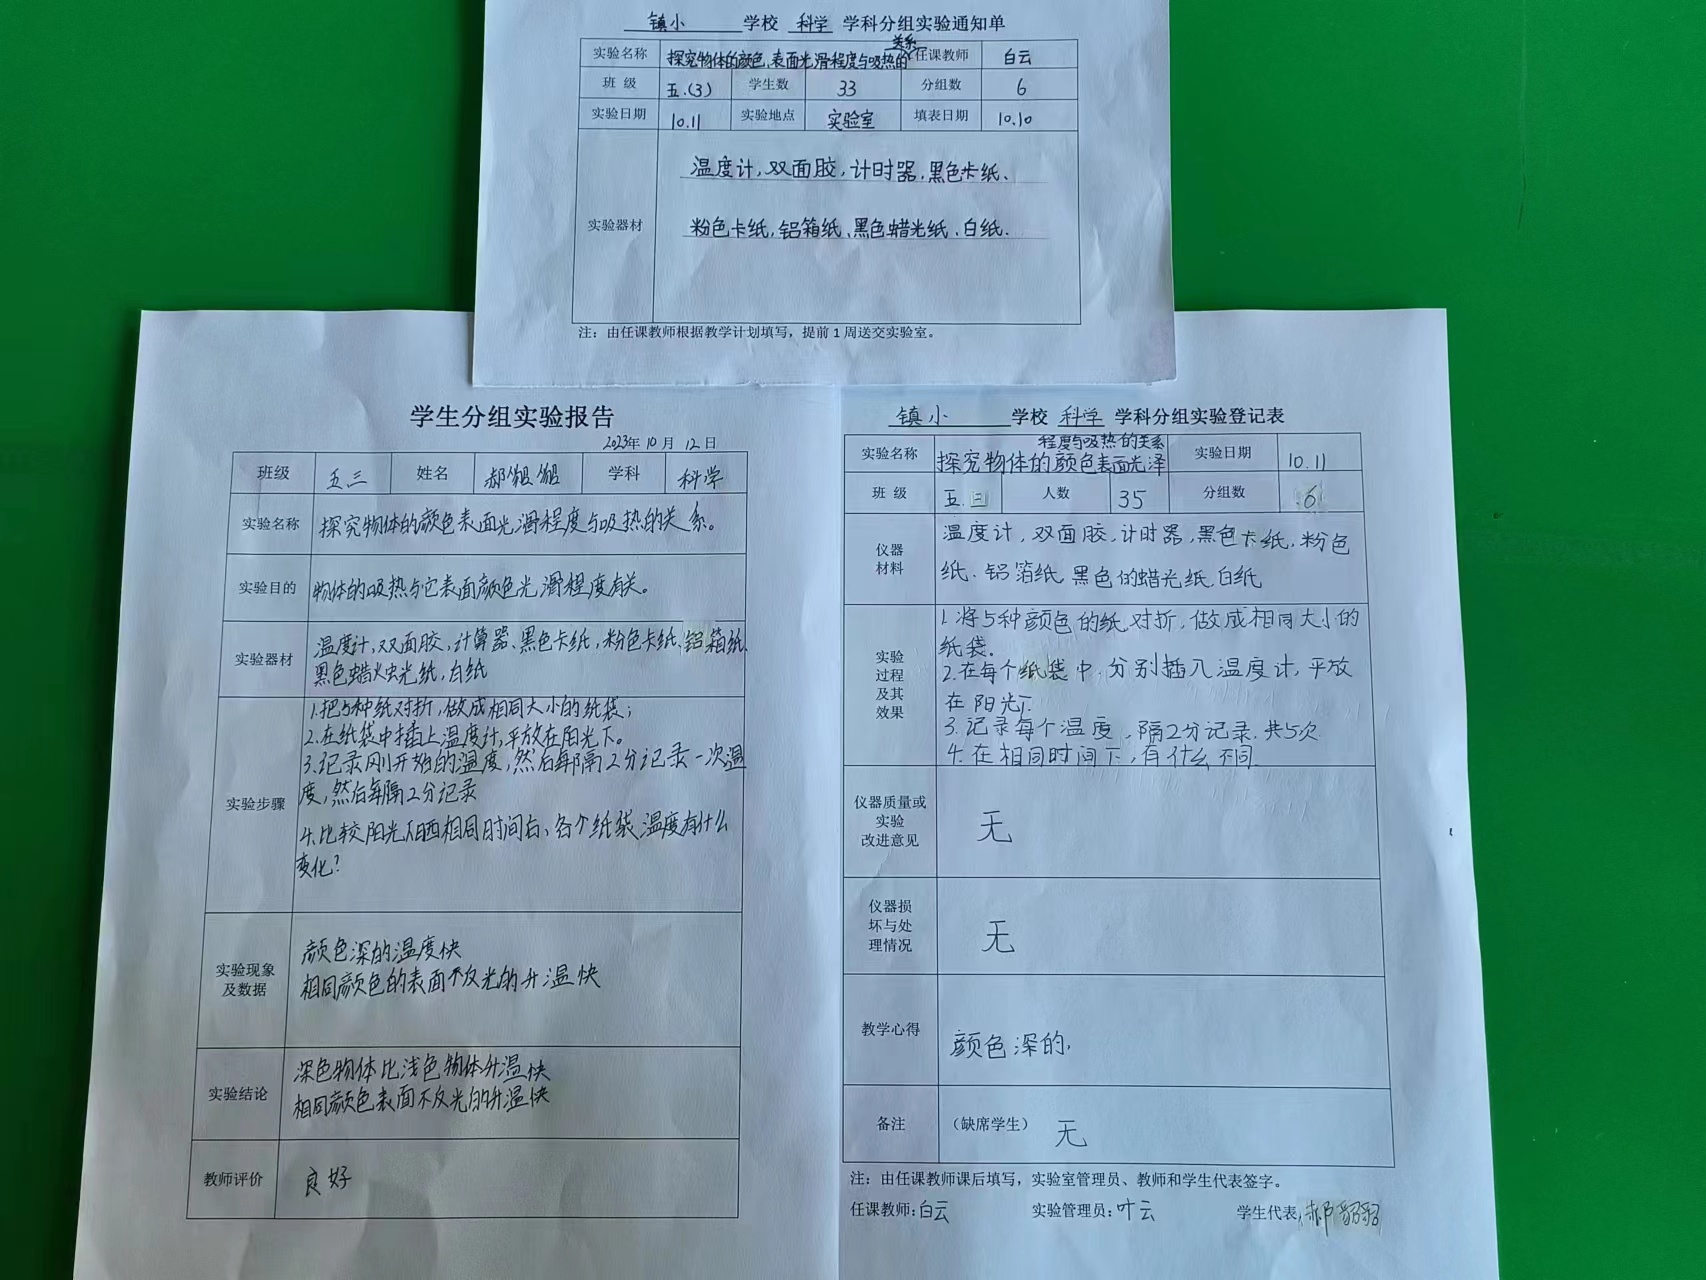 镇小 学校 科学 学科分组实验通知单
实验名称 探究物体的颜色、表面光滑程度与吸热的关系 任课教师 白云
班 级 五.(3) 学生数 33 分组数 6
实验日期 10.11 实验地点 实验室 填表日期 10.10
实验器材
温度计,双面胶,计时器,黑色卡纸、
粉色卡纸,铝箱纸、黑色蜡光纸、白纸.
注：由任课教师根据教学计划填写，提前1周送交实验室。
学生分组实验报告
2023年10月12日
班级 五三 姓名 郝 学科 科学
实验名称 探究物体的颜色表面光滑程度与吸热的关系。
实验目的 物体的吸热与它表面颜色光滑程度有关。
实验器材
温度计,双面胶,计算器、黑色卡纸,粉色卡纸、铝箱纸、
黑色蜡光纸,白纸
实验步骤
1.把5种纸对折,做成相同大小的纸袋;
2.在纸袋中插上温度计,平放在阳光下。
3.记录刚开始的温度,然后每隔2分记录一次温
度,然后每隔2分记录
4.比较阳光下晒相同时间后、各个纸袋温度有什么
变化?
实验现象
及数据
颜色深的温度快
相同颜色的表面不反光的升温快
实验结论
深色物体比浅色物体升温快
相同颜色表面不反光的升温快
教师评价 良好
镇小 学校 科学 学科分组实验登记表
实验名称 探究物体的颜色表面光泽程度与吸热的关系 实验日期 10.11
班 级 五.三 人数 35 分组数 6
仪器
材料
温度计,双面胶,计时器,黑色卡纸,粉色
纸、铝箔纸 黑色的蜡光纸.白纸
实验
过程
及其
效果
1.将5种颜色的纸对折,做成相同大小的
纸袋.
2.在每个纸袋中分别插入温度计,平放
在阳光下.
3.记录每个温度,隔2分记录.共5次
4.在相同时间下,有什么不同.
仪器质量或
实验
改进意见
无
仪器损
坏与处
理情况
无
教学心得 颜色深的,
备注 （缺席学生） 无
注：由任课教师课后填写，实验室管理员、教师和学生代表签字。
任课教师:白云 实验管理员:叶云 学生代表:郝